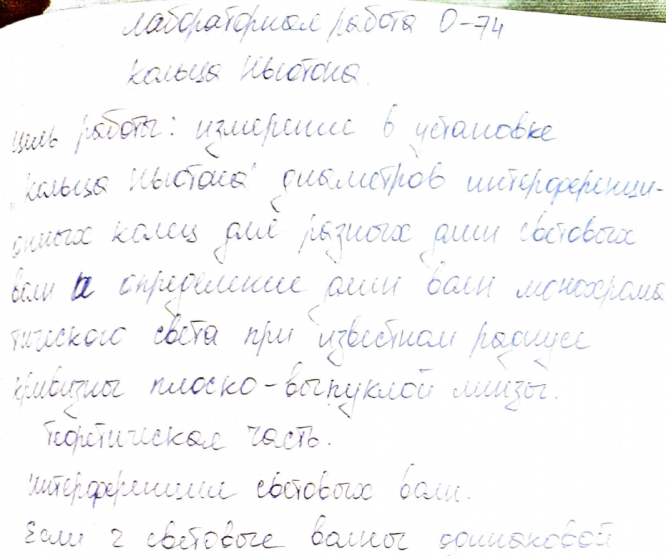 Лабораторная работа О-74
Кольца Ньютона.
Цель работы: измерение в установке
"Кольца Ньютона" диаметров интерференци-
онных колец для разных длин световых
волн и определение длин волн монохрома
тического света при известном радиусе
кривизны плоско-выпуклой линзы.
Теоретическая часть.
Интерференция световых волн.
Если 2 световые волны одинаковой